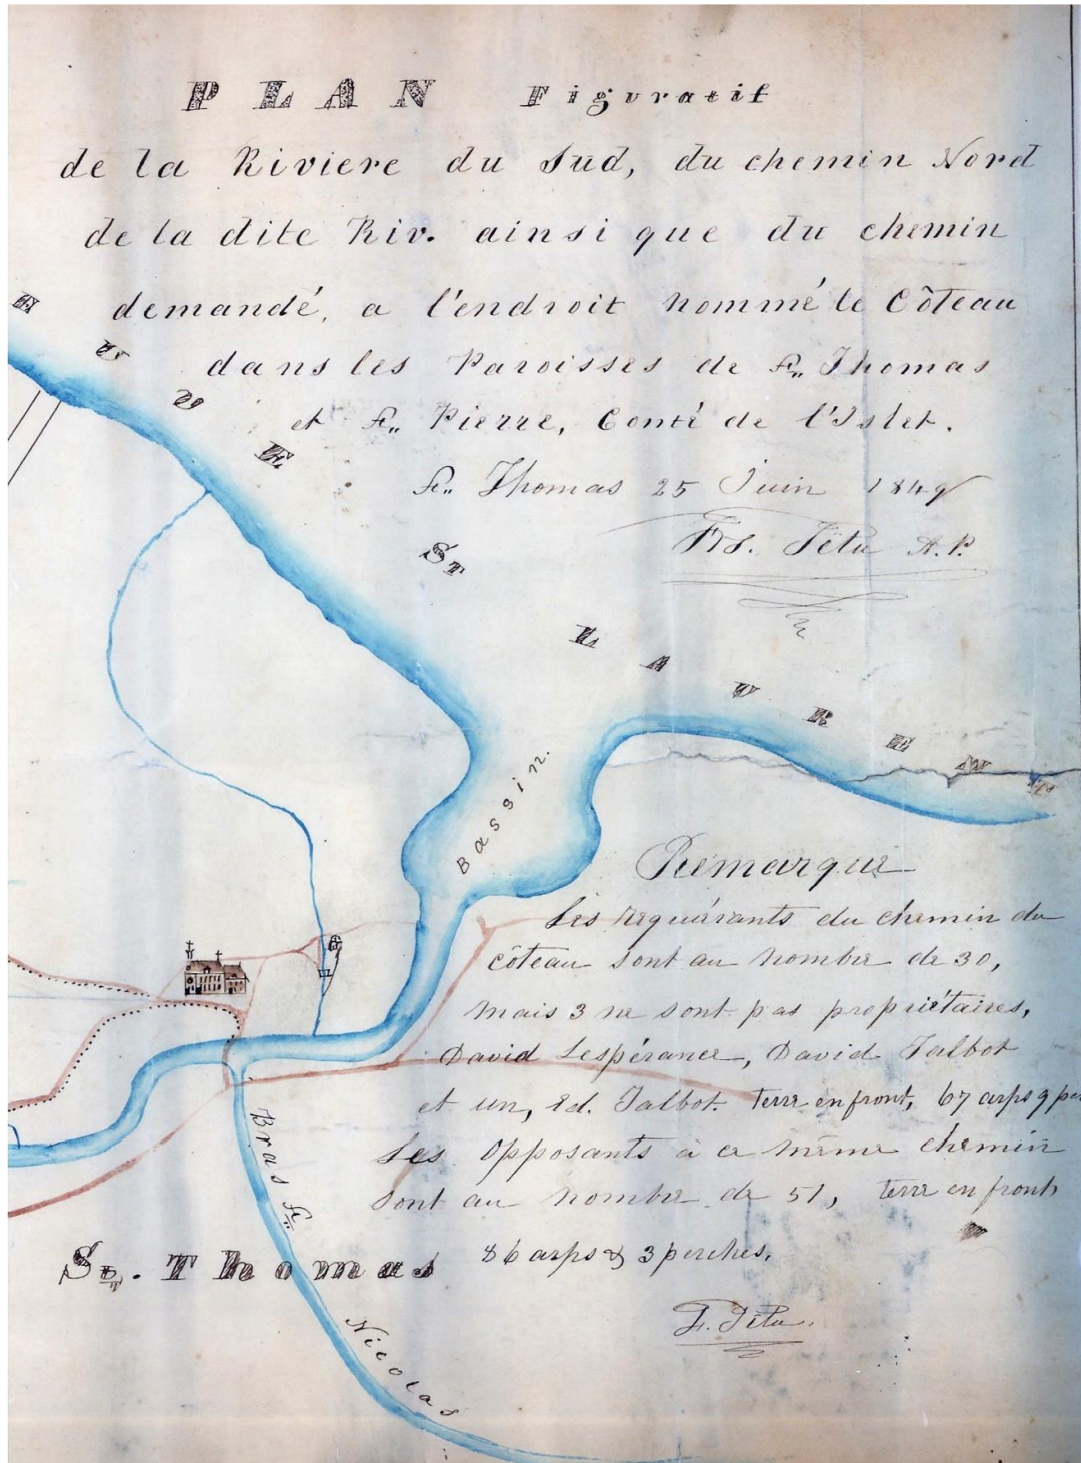 PLAN Figuratif
de la Riviere du Sud, du chemin Nord
de la dite Riv. ainsi que du chemin
demandé, a l'endroit nommé le Côteau
dans les Paroisses de St„ Thomas
et St„ Pierre, Conté de l'Islet.
St„ Thomas 25 Juin 1849
Frs. Têtu A.P.
EUVE
ST LAURENT
Bassin.
Remarque
Les requérants du chemin du
côteau sont au nombre de 30,
mais 3 ne sont pas propriétaires,
David Lespérance, David Talbot
et un, Ed. Talbot. terre en front, 67 arps 9 per
Les Opposants à ce même chemin
sont au nombre de 51, terre en front
86 arps & 3 perches.
F. Têtu.
Bras St„
Nicolas
St. Thomas